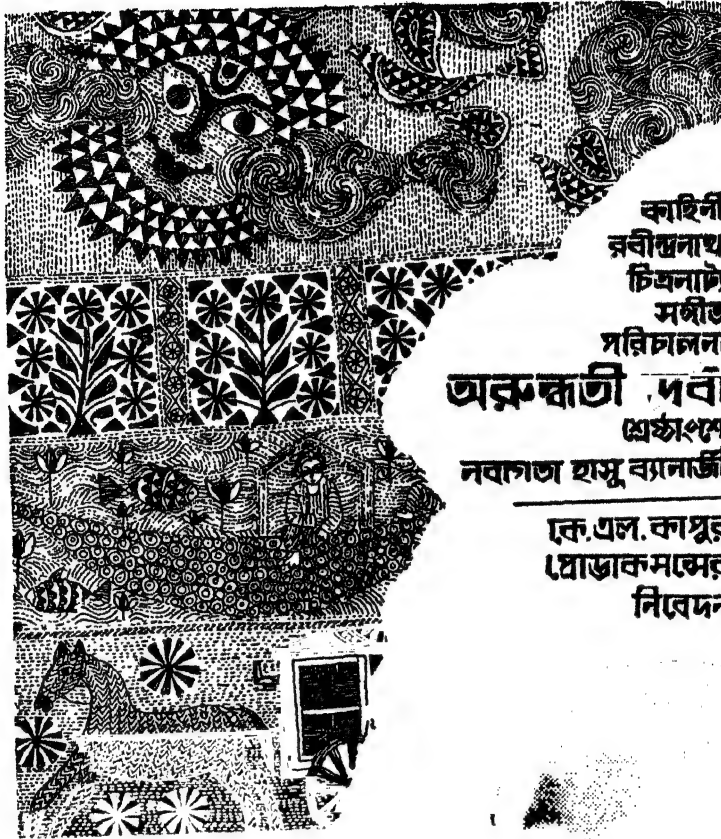 কাহিনী
রবীন্দ্রনাথ
চিত্রনাট্য
সঙ্গীত
পরিচালনা
অরুন্ধতী দেবী
শ্রেষ্ঠাংশে
নবাগতা হাসু ব্যানার্জী
কে.এল. কাপুর
প্রোডাকসন্সের
নিবেদন